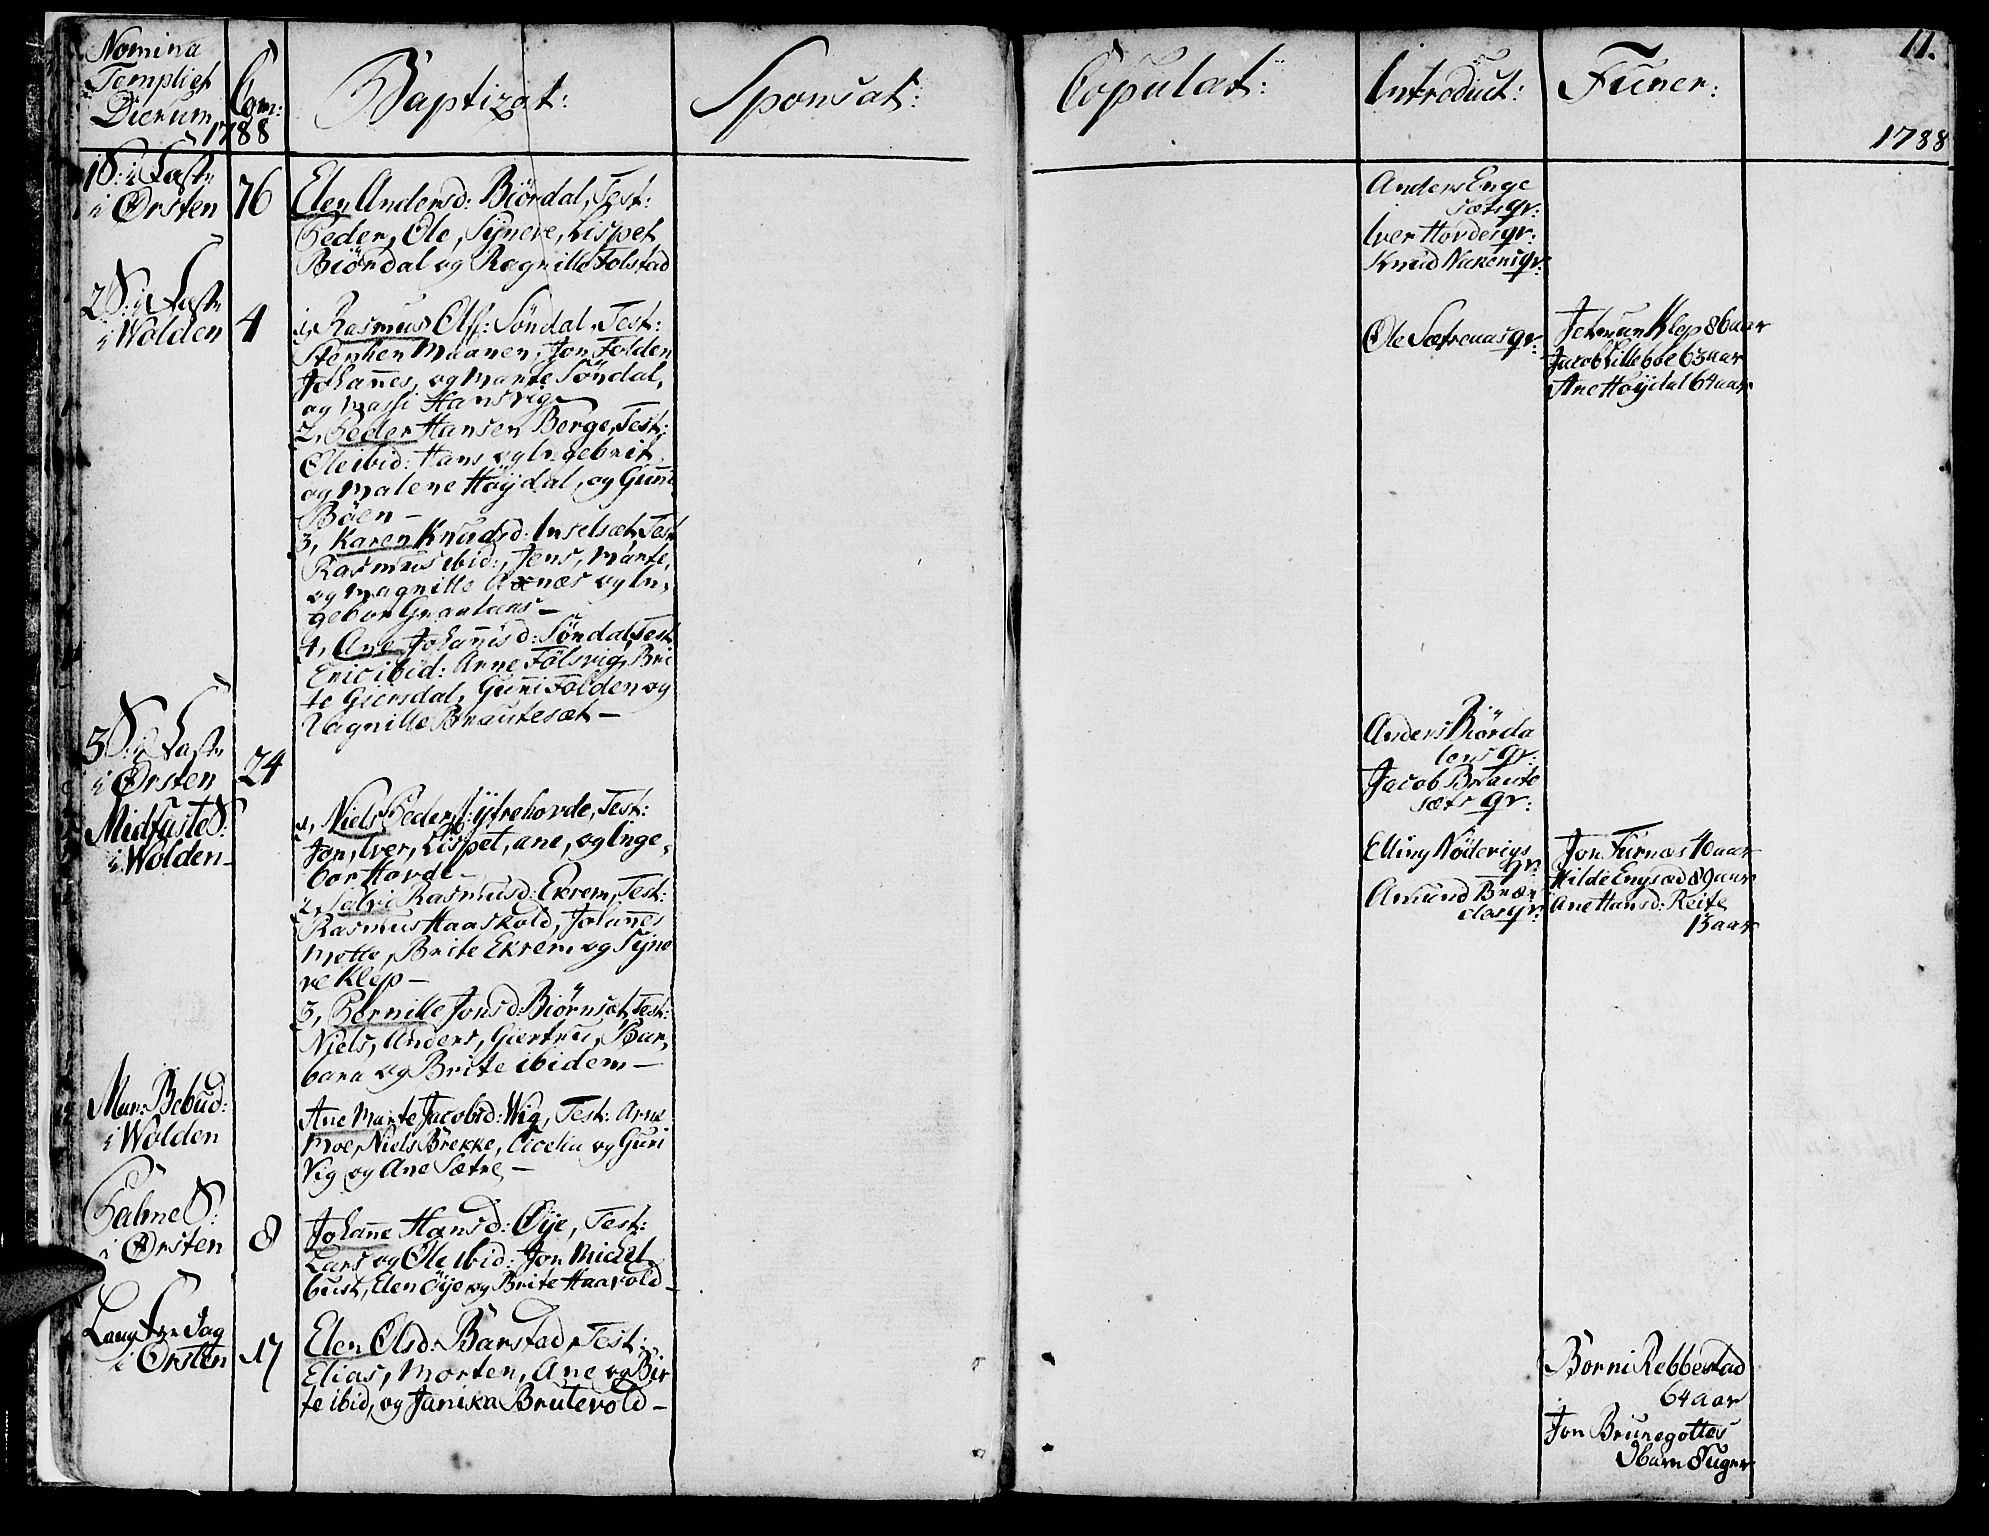 Nomina
Templi et
Dierum
1788
Com:
Baptizat:
Sponsat:
Copulat:
Introduct:
Funer:
11.
1788
1 S: i Faste
i Ørsten
76
Elen Andersd: Biørdal, Test:
Peder, Ole, Syneve, Lispet
Biørdal og Ragnille Folstad
Anders Enge
sæts qv:
Iver Hovdes qv:
Knud Nakens qv:
2 S: i Faste
i Wolden
4
1, Rasmus Ols: Söndal, Test:
Stephen Maanen, Jon Folden
Johañes, og Marte Söndal,
og Massi Hansvig
2, Peder Hansen Berge, Test:
Ole ibid: Hans og Ingebrit
og Malene Høydal, og Guñi
Böen -
3, Karen Knudsd: Inselsæt, Test
Rasmus ibid:, Jens, Marte,
og Magnille Aarnæs og In,
gebor Grautaas -
4, Ane Johañisd: Söndal, Test
Eric ibid: Arne Fölsvig, Bri
te Giersdal, Guñi Folden og
Vagnille Brautesæt -
Ole Sætrenas qv:
Jetmun Klep 86 aar
Jacob Lillebøe 63 aar
Ane Høydal 64 aar
3 S: i Faste
i Ørsten
24
Anders Biørda
lens qv:
Jacob Braute
sæts qv:
Midfaste S:
i Wolden -
1, Niels Peders: Ytrehovde, Test:
Jon, Iver, Lispet, ane, og Inge,
bor Hovde -
2, Salvi Rasmusd: Ekrem, Test:
Rasmus Haaskold, Johañes
Motte, Brite Ekrem og Syne
ve Klep -
3, Pernille Jonsd: Biørnsæt, Test:
Niels, Anders, Giertru, Bar,
bara og Brite ibidem -
Elling Nöderigs
qv:
Amund Bræn
des qv:
Jon Furnæs 40 aar
Hilde Engsæd 89 aar
Ane Hansd: Reite
13 aar
Mar: Bebud:
i Wolden
Ane Marte Jacobsd: Wig, Test: Arne
Moe, Niels Brekke, Cicelia og Guri
Vig og Ane Sætre, -
Palme S:
i Ørsten
8
Johañe Hansd: Øye, Test:
Lars og Ole ibid: Jon Michel
bust, Elen Öye og Brite Haavold -
Langfredag
i Ørsten
17
Elen Olsd: Barstad, Test:
Elias, Morten, Ane og Bir
te ibid, og Janika Brutevold -
Borni Rebbestad
64 aar
Jon Brunegottes
Barn 8 uger